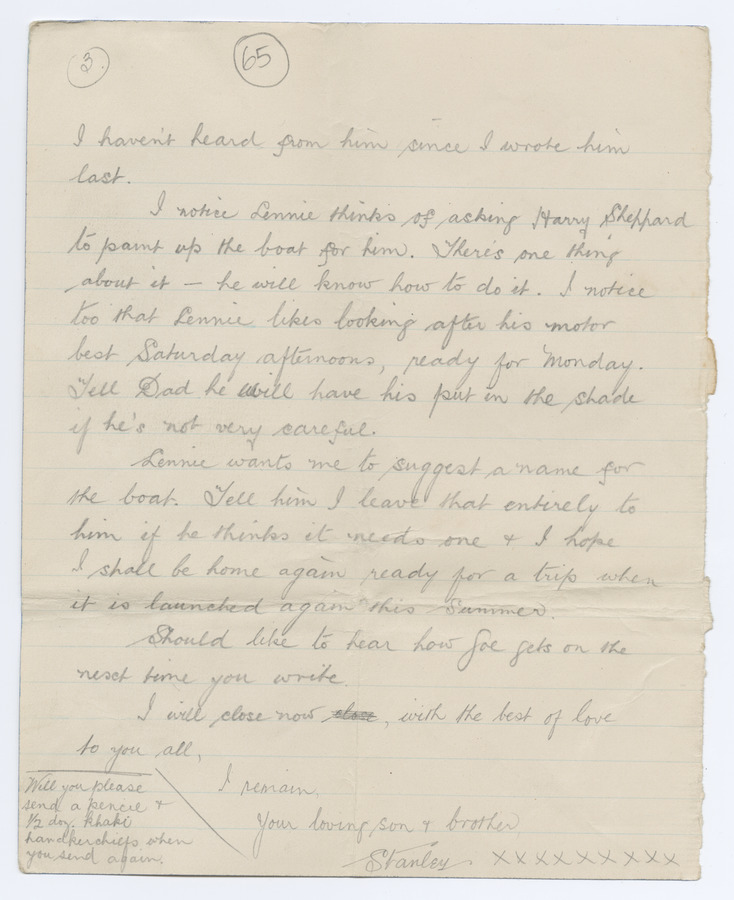 3.
65
I haven't heard from him since I wrote him
last.
I notice Lennie thinks of asking Harry Sheppard
to paint up the boat for him. There's one thing
about it — he will know how to do it. I notice
too that Lennie likes looking after his motor
best Saturday afternoons, ready for Monday.
Tell Dad he will have his put in the shade
if he's not very careful.
Lennie wants me to suggest a name for
the boat. Tell him I leave that entirely to
him if he thinks it needs one + I hope
I shall be home again ready for a trip when
it is launched again this Summer.
Should like to hear how Joe gets on the
next time you write.
I will close now close, with the best of love
to you all,
I remain,
Your loving son + brother
Stanley. XXXXXXXXX
Will you please
send a pencil +
1/2 doz. khaki
handkerchiefs when
you send again.